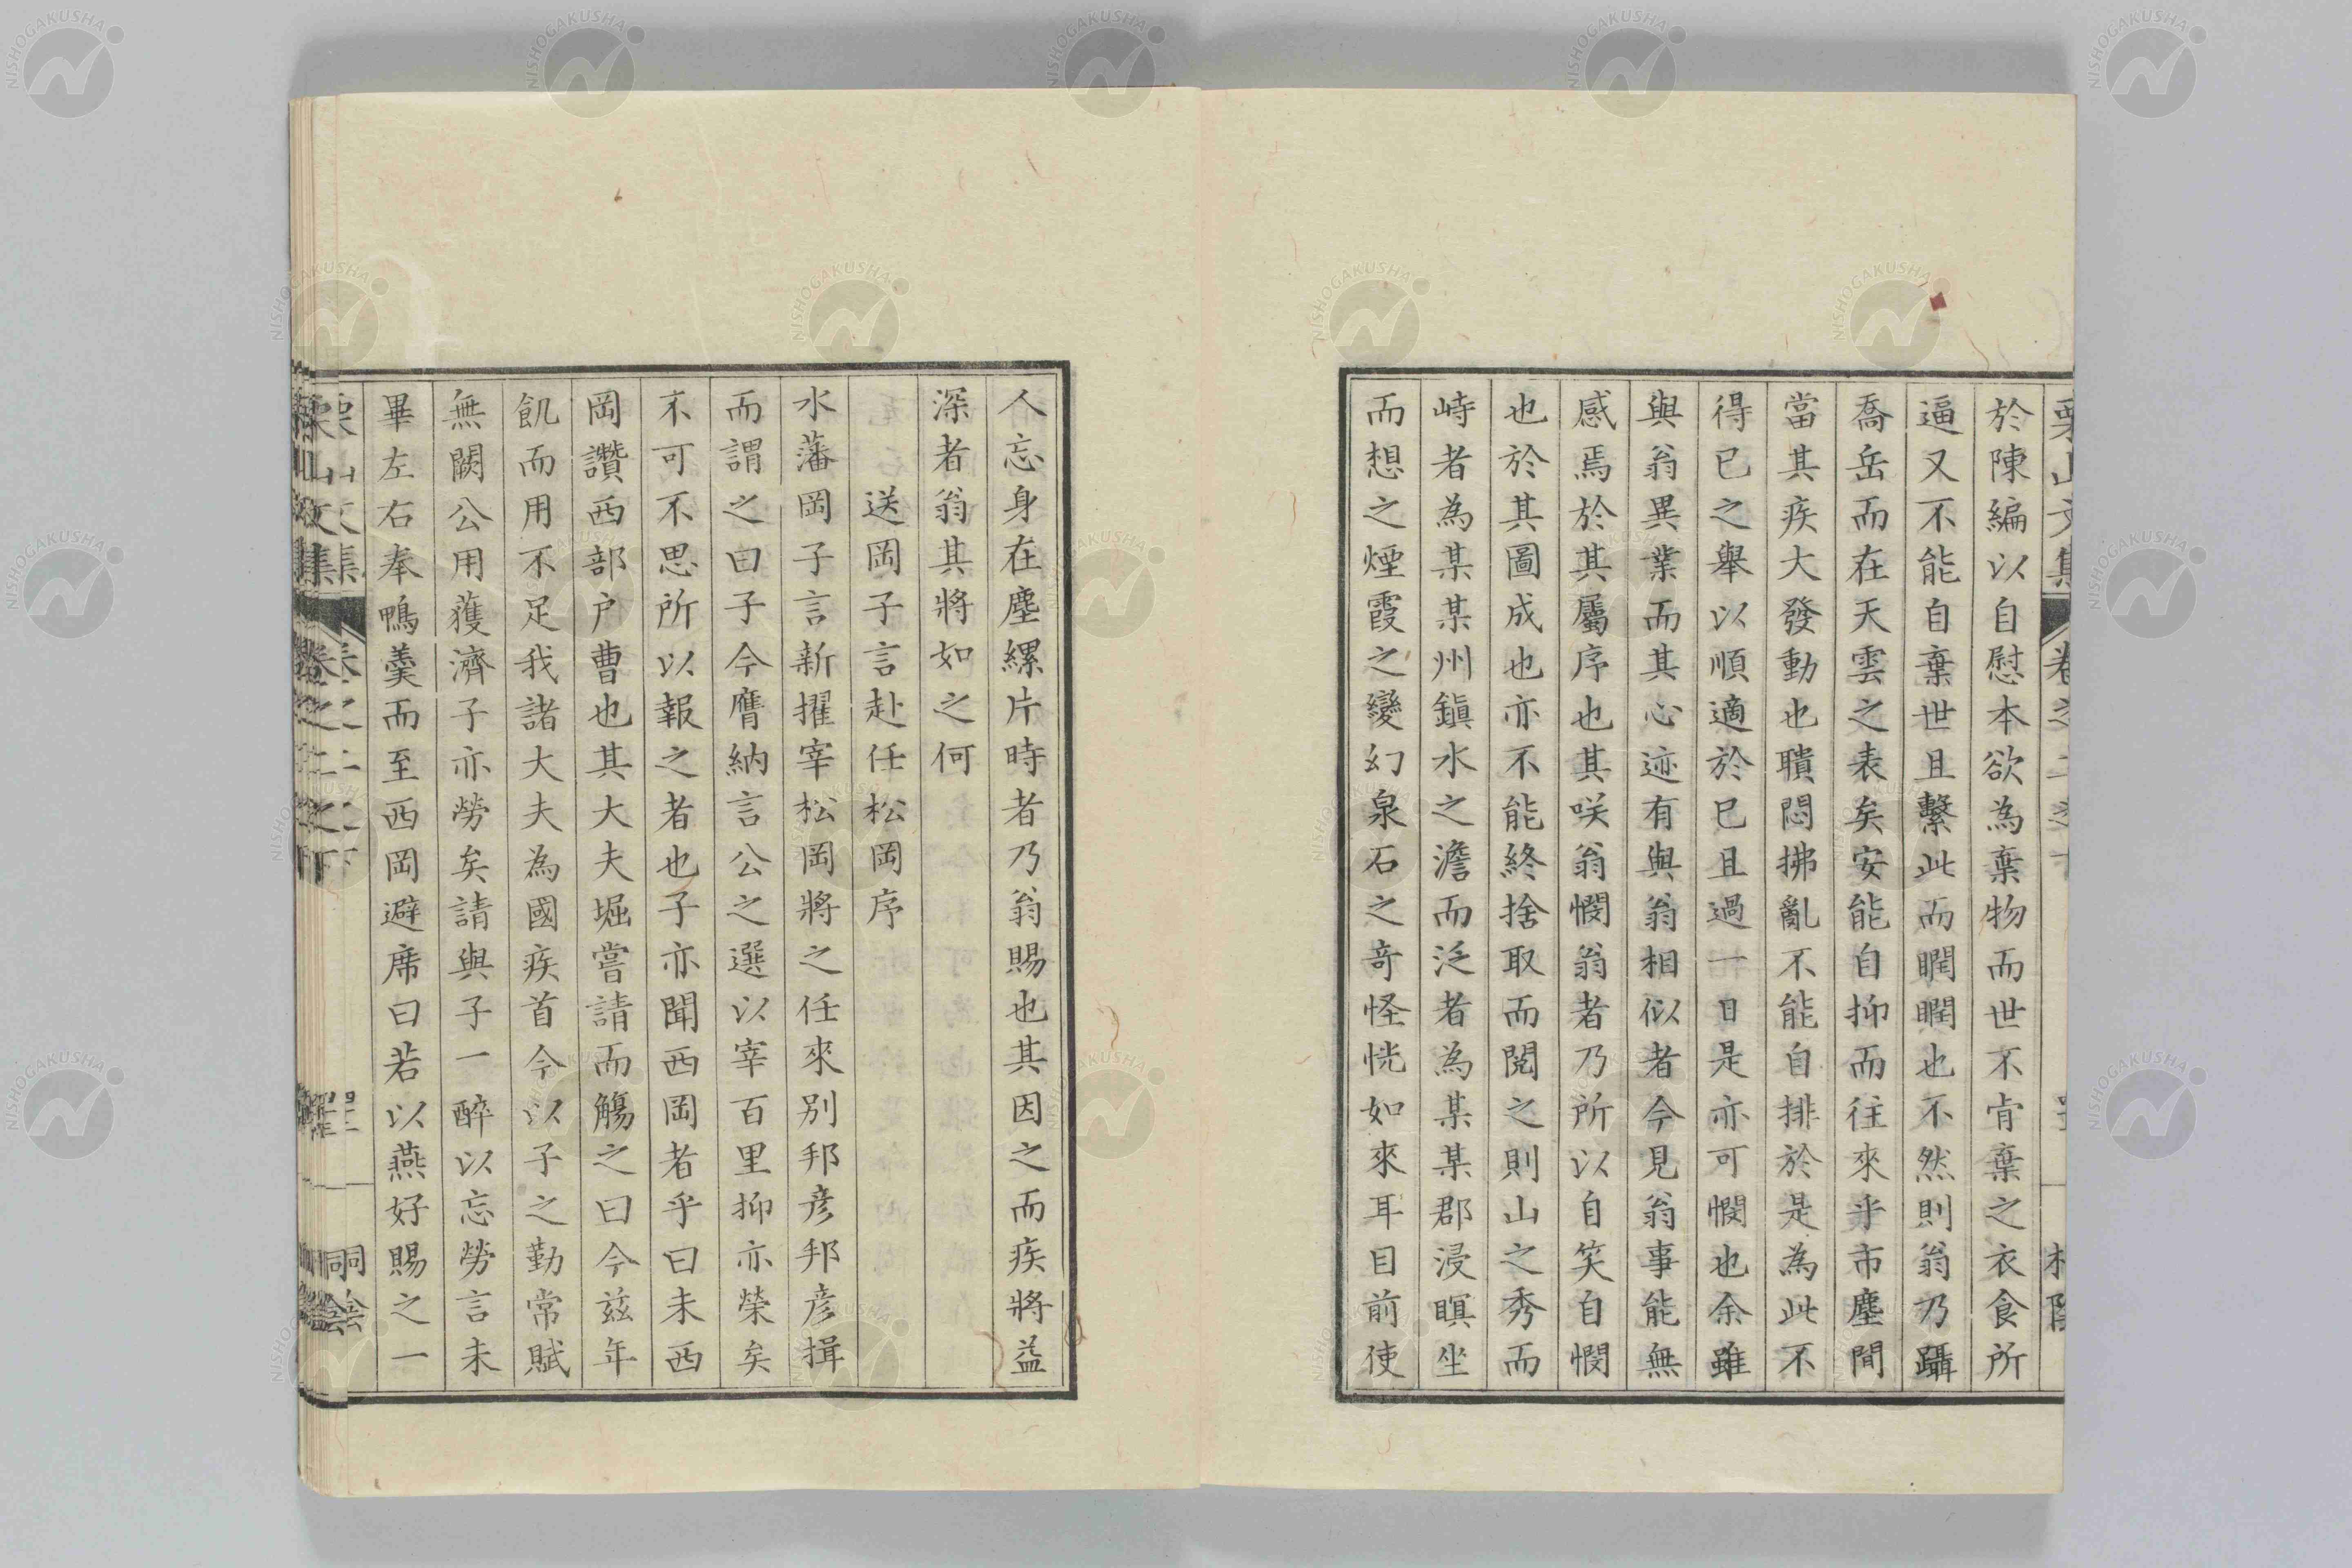 於陳編以自慰本欲為棄物而世不肯棄之衣食所
逼又不能自棄世且繫此而瞯瞯也不然則翁乃躡
喬岳而在天雲之表矣安能自抑而往來乎市塵間
當其疾大發動也聵悶拂亂不能自排於是為此不
得已之舉以順適於已且過一日是亦可憫也余雖
與翁異業而其心迹有與翁相似者今見翁事能無
感焉於其屬序也其咲翁憫翁者乃所以自笑自憫
也於其圖成也亦不能終捨取而閱之則山之秀而
峙者為某某州鎮水之澹而泛者為某某郡浸瞑坐
而想之煙霞之變幻泉石之奇怪恍如來耳目前使
人忘身在塵縲片時者乃翁賜也其因之而疾將益
深者翁其將如之何
送岡子言赴任松岡序
水藩岡子言新擢宰松岡將之任來別邦彥邦彥揖
而謂之曰子今膺納言公之選以宰百里抑亦榮矣
不可不思所以報之者也子亦聞西岡者乎曰未西
岡讚西部戶曹也其大夫堀嘗請而觴之曰今茲年
飢而用不足我諸大夫為國疾首今以子之勤常賦
無闕公用獲濟子亦勞矣請與子一醉以忘勞言未
畢左右奉鴨羹而至西岡避席曰若以燕好賜之一
栗山文集
卷之二之下